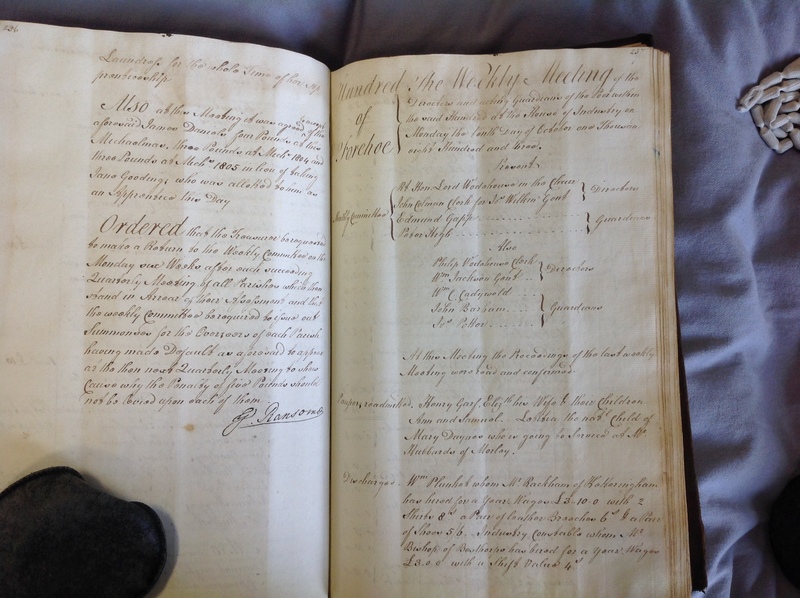 236
Laundress for the whole Time of her Ap-
prenticeship
Also at this Meeting it was agreed to accept of the
aforesaid James Daniels four Pounds at this
Michaelmas three Pounds at Mich.s 1804 and
three Pounds at Mich.s 1805 in lieu of taking
Jane Goodings who was allotted to him as
an Apprentice this Day
Ordered that the Treasurer be required
to make a Return to the Weekly Committee on the
Monday six Weeks after each succeeding
Quarterly Meeting of all Parishes which then
stand in Arrear of their Assessment and that
the weekly Committee be required to issue out
Summonses for the Overseers of each Parish
having made Default as aforesaid to appear
at the then next Quarterly Meeting to shew
Cause why the Penalty of five Pounds should
not be levied upon each of them.
P. Ransome
237
Hundred of Forehoe
The Weekly Meeting of the
Directors and acting Guardians of the Poor within
the said Hundred at the House of Industry on
Monday the tenth Day of October one Thousand
eight Hundred and three.
Present
Weekly Committee
Rt Hon. Lord Wodehouse in the Chair
John Colman Clerk for Jno Wilkin Gent
Directors
Edmund Gapp
Peter
Guardians
Also
Philip Wodehouse Clerk
Wm Jackson Gent
Directors
Wm C. Cadywold
John Barham
Jno Potter
Guardians
At this Meeting the Proceedings of the last weekly
Meeting were read and confirmed.
Paupers readmitted. Henry Garf, Elizth his Wife & their Children
Ann and Samuel. the natl Child of
Mary Daynes who is going to Service at Mr
Hubbards of Morley.
Discharged. Wm Plunket whom Mr Rackham of Ketteringham
has hired for a Year, Wages £3.10.0 with 2
Shirts 8s a Pair of leather Breeches 6s & a Pair
of Shoes 5/6. Industry Constable whom Mr
Bishop of has hired for a Year Wages
£3.0.0 with a Shift Value 4s